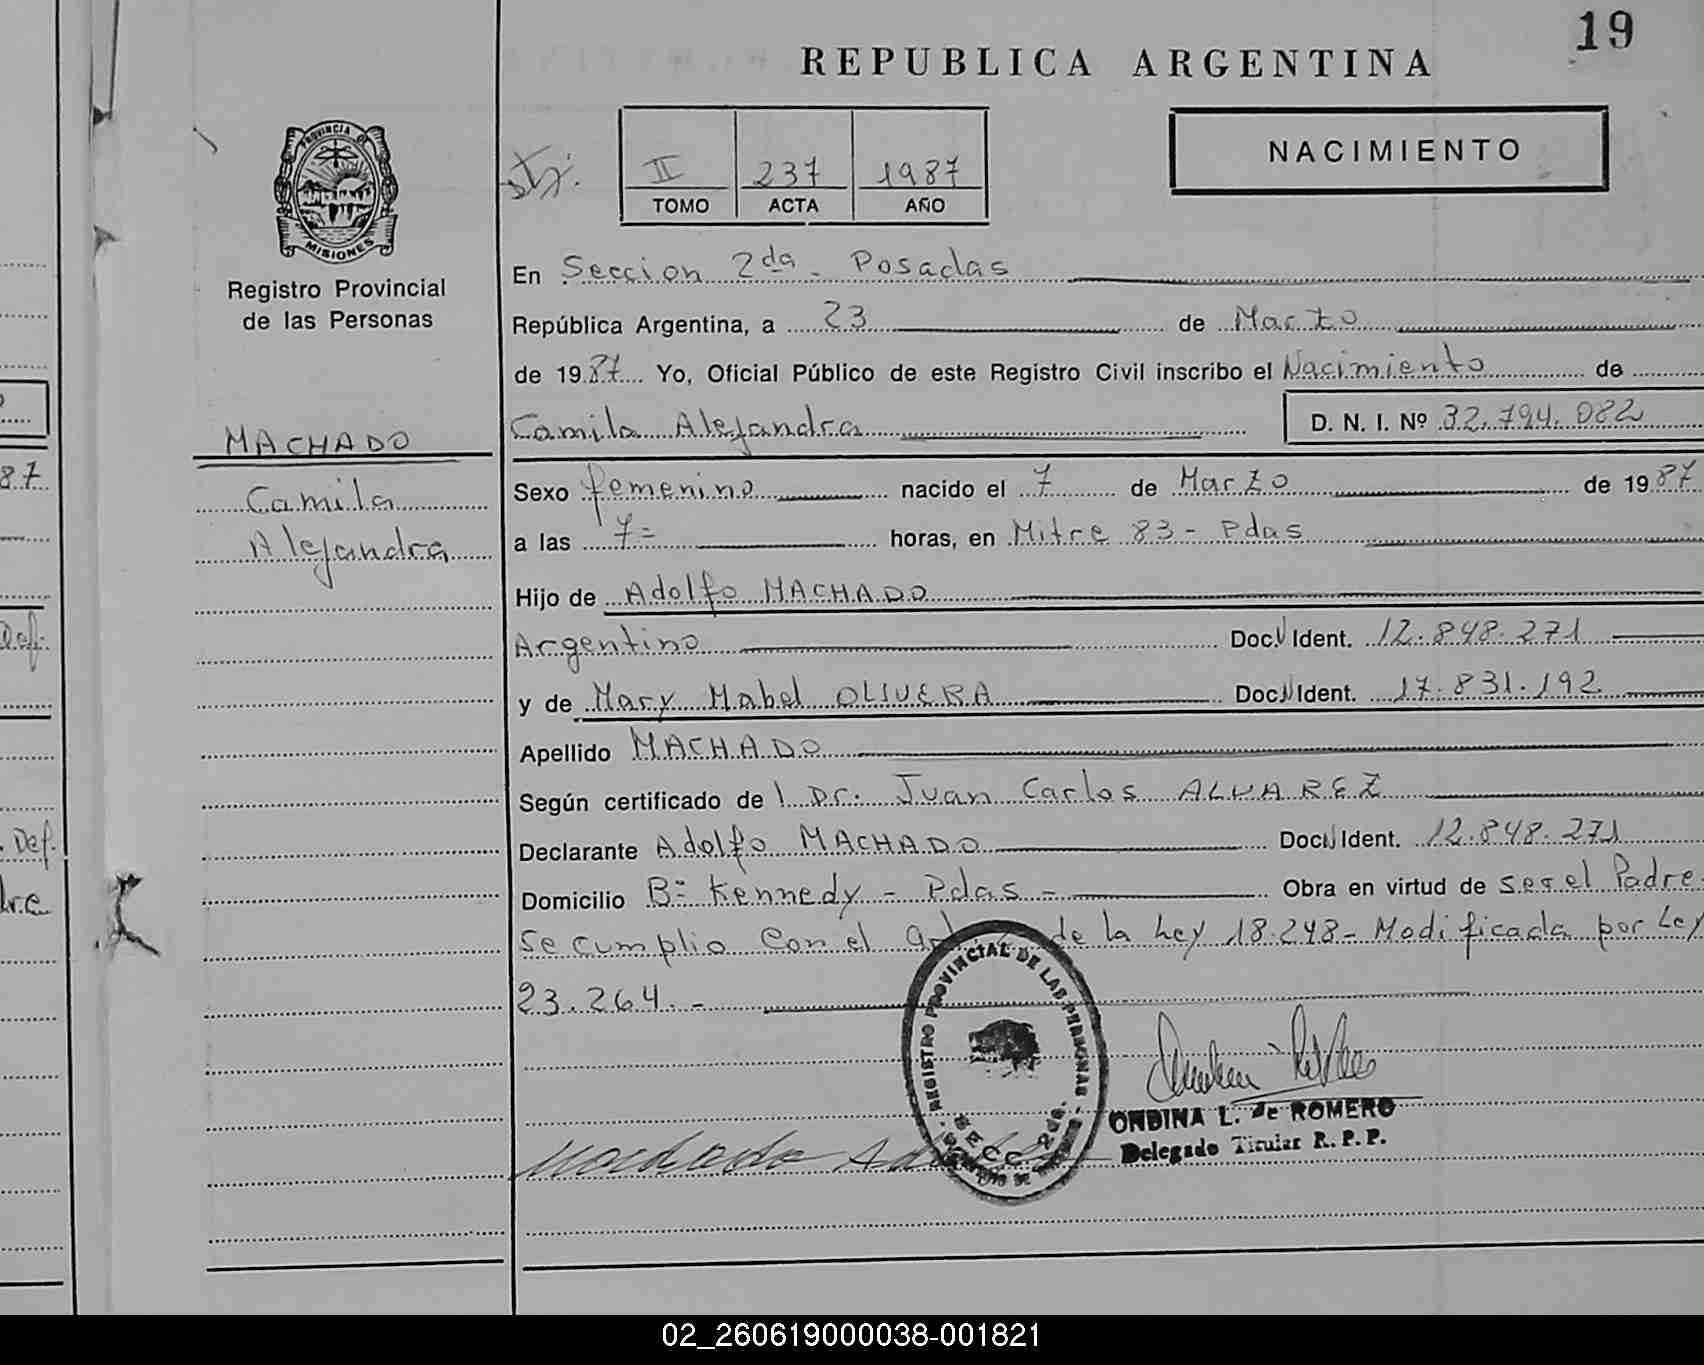 19
REPUBLICA ARGENTINA
NACIMIENTO
PROVINCIA DE
MISIONES
Registro Provincial
de las Personas
II 237 1987
TOMO ACTA AÑO
En Seccion 2da - Posadas
República Argentina, a 23 de Marzo
de 1987 Yo, Oficial Público de este Registro Civil inscribo el Nacimiento de
Camila Alejandra D. N. I. Nº 32.794.082
MACHADO
Camila
Alejandra
Sexo femenino nacido el 7 de Marzo de 1987
a las 7= horas, en Mitre 83 - Pdas
Hijo de Adolfo MACHADO
Argentino Doc. Ident. 12.848.271
y de Mary Mabel OLIVERA Doc. Ident. 17.831.192
Apellido MACHADO
Según certificado de l Dr. Juan Carlos ALVAREZ
Declarante Adolfo MACHADO Doc. Ident. 12.848.271
Domicilio Bº Kennedy - Pdas - Obra en virtud de ser el Padre
Se cumplio con el de la Ley 18.248 - Modificada por Ley
23.264. -
REGISTRO PROVINCIAL DE LAS PERSONAS
SECC. 2da.
Machado
ONDINA L. de ROMERO
Delegado Titular R. P. P.
87
Def.
Def.
dre
02_260619000038-001821